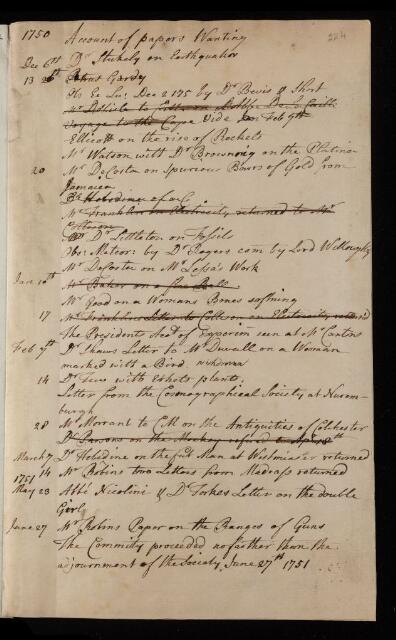 1750 Account of papers Wanting 224
Dec 6th Dr Stukely on Earthquakes
13 26th
Ob Ec Lu: Dec 2 175 by Dr Bevis & Short
Voyage to the Cape Vide Feb 9th
Ellicott on the rise of Rockets
Mr Watson with Dr Browning on the Platina
20 Mr DaCosta on Spurious Boxes of Gold from
Jamaica
Mr Franklin on Electricity returned to Mr
Collinson
Dr Littleton on Fossils
Obs: Meteor: by Dr Rogers com by Lord Willoughby
Mr DaCosta on Mr Work
Jan 10th Mr Baker on a Fire Ball
Mr Good on a Womans Bones softning
17 Mr Franklins Letter to Collison on Electricity returned
The Presidents Acct of Experim seen at Mr Cantons
Feb 7th Dr Shaws Letter to Mr Duvall on a Woman
marked with a Bird withdrawn
14 Dr with plants
Letter from the Cosmographical Society at Nurem-
burgh
28 Mr Morrant to CM on the Antiquities of Colchester
Dr Parsons on the
March 7 Dr Hobodine on the Man at Westminster returned
14 Mr Robins two Letters from Madrass returned
1751
May 23 Abbé Nicolini & Dr Torkes Letter on the double
Girl
June 27 Mr Robins Paper on the Ranges of Guns
The Commity proceeded no farther than the
adjournment of the Society June 27th 1751